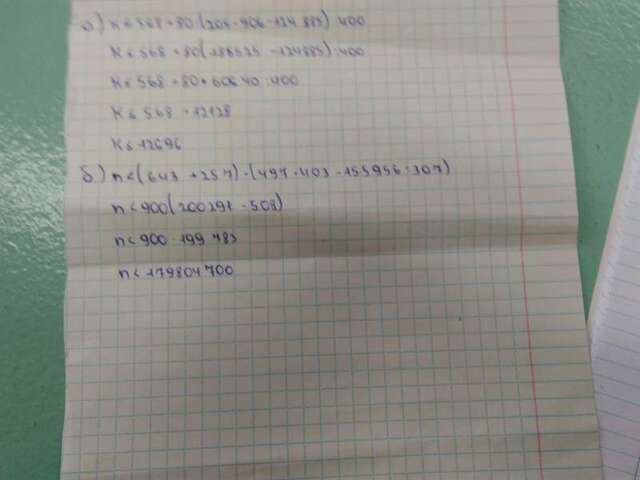 а) к ≤ 568 + 80 (205 · 906 - 124 885) : 400
к ≤ 568 + 80 (185525 - 124885) : 400
к ≤ 568 + 80 * 60640 : 400
к ≤ 568 + 12128
к ≤ 12696
б) n < (643 + 257) · (497 · 403 - 155956 : 307)
n < 900 (200291 - 508)
n < 900 · 199 783
n < 179804700